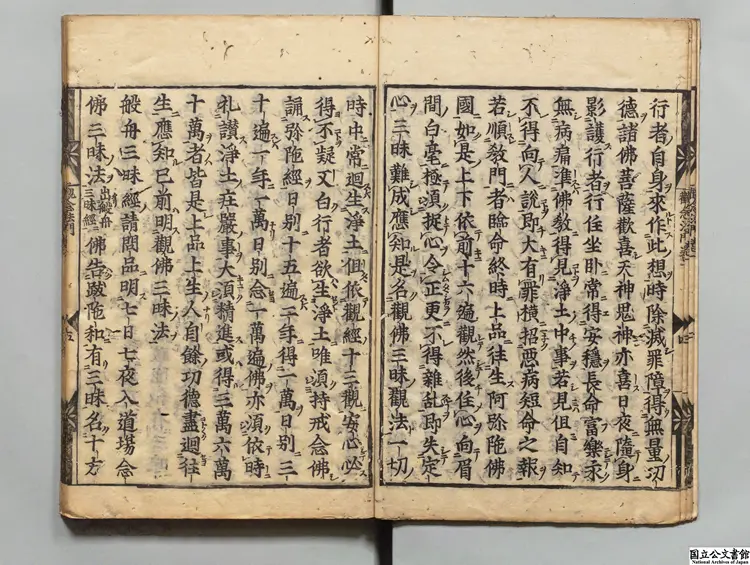 行者自身來作此想時除滅罪障得無量功
德諸佛菩薩歡喜天神鬼神亦喜日夜隨身
影護行者行住坐臥常得安穩長命富樂永
無病痛準佛教得見淨土中事若見但自知
不得向人說即大有罪横招惡病短命之報
若順教門者臨命終時上品往生阿弥陁佛
國如是上下依前十六遍觀然後住心向眉
間白毫極須捉心令正更不得雜乱即失定
心三昧難成應知是名觀佛三昧觀法一切
時中常迴生淨土但依觀經十三觀安心必
得不疑又白行者欲生淨土唯須持戒念佛
誦弥陁經日别十五遍二年得一万日别三
十遍一年一萬日别念一萬遍佛亦須依時
礼讃淨土莊嚴事大須精進或得三萬六萬
十萬者皆是上品上生人自餘功德盡迴往
生應知已前明觀佛三昧法
般舟三昧經請問品明七日七夜入道場念
佛三昧法出般舟三昧經佛告跋陁和有三昧名十方
觀念法門
国立公文書館
National Archives of Japan